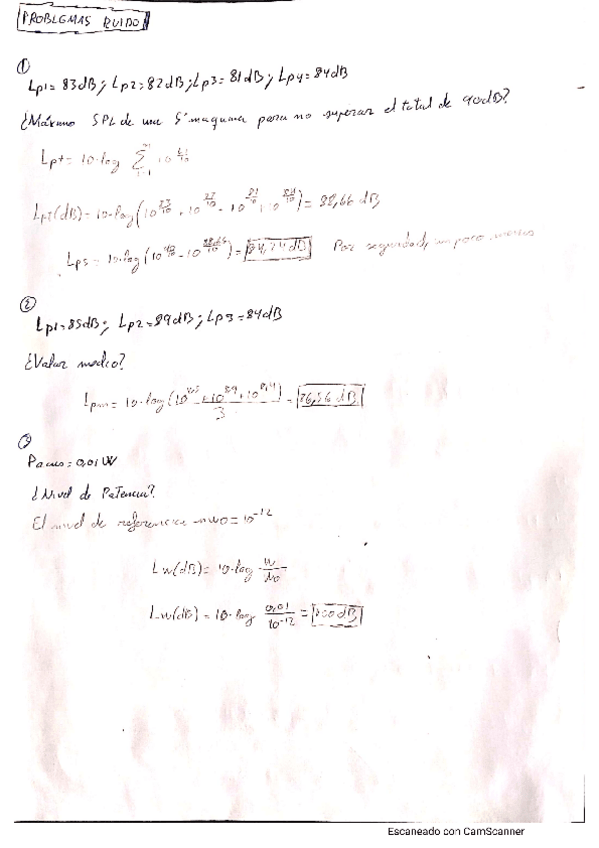 PROBLEMAS RUIDO
①
Lp1= 83dB; Lp2=82dB; Lp3= 81dB; Lp4= 84dB
¿Máximo SPL de una 5ª maquina para no superar el total de 90dB?
Lpt= 10·log Σ 10^Li/10
LpT(dB)= 10·log(10^83/10 + 10^82/10 + 10^81/10 + 10^84/10)= 88,66 dB
Lp5= 10·log(10^90/10 - 10^88,66/10)= 84,24 dB Por seguridad, un poco menos
②
Lp1=85dB; Lp2=89dB; Lp3=84dB
¿Valor medio?
Lpm= 10·log(10^8,5 + 10^8,9 + 10^8,4 / 3)= 86,56 dB
③
Pacus=0,01W
¿Nivel de Potencia?
El nivel de referencia W0= 10^-12
Lw(dB)= 10·log W/W0
Lw(dB)= 10·log 0,01/10^-12 = 100dB
Escaneado con CamScanner